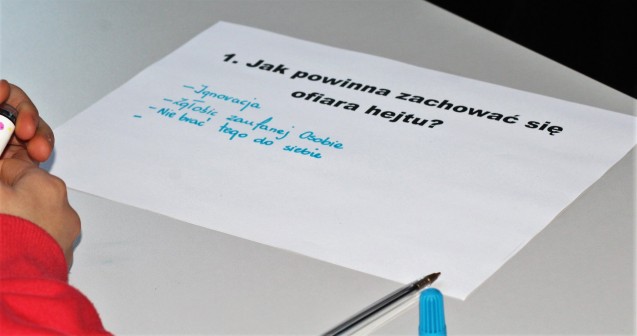 1. Jak powinna zachować się
ofiara hejtu?
- Ignoracja
- zgłosić zaufanej Osobie
- Nie brać tego do siebie
-